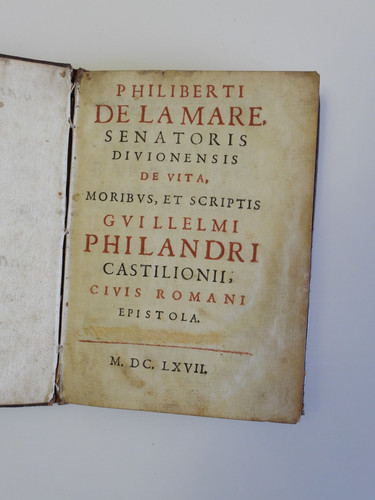 PHILIBERTI
DE LA MARE,
SENATORIS
DIVIONENSIS
DE VITA,
MORIBVS, ET SCRIPTIS
GVILLELMI
PHILANDRI
CASTILIONII,
CIVIS ROMANI
EPISTOLA.
M. DC. LXVII.